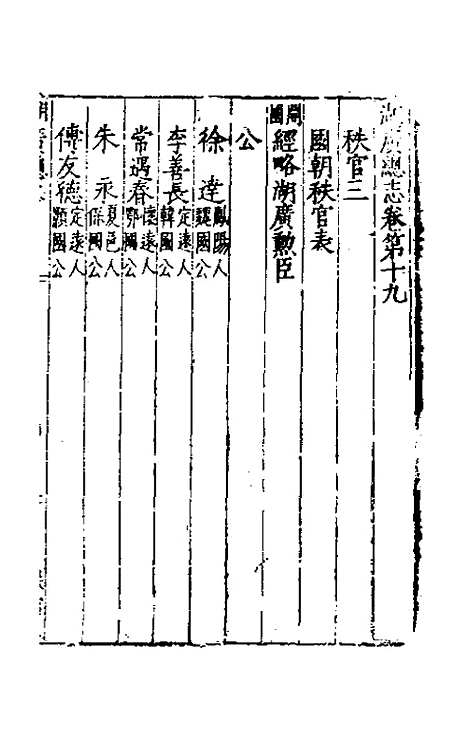 湖廣總志卷第十九
秩官三
國朝秩官表
開國經略湖廣勲臣
公
徐達鳳陽人魏國公
李善長定遠人韓國公
常遇春懷遠人鄂國公
朱永夏邑人保國公
傅友德定遠人潁國公